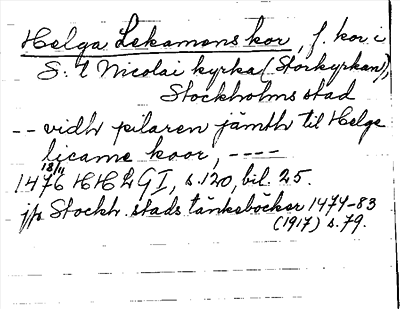 Helga Lekamens kor, f. kor i
S:t Nicolai kyrka (Storkyrkan),
Stockholms stad
-- vidh pilaren jämth til Helge
licame koor, ----
18/11
1476 HHLGI, s. 120, bil. 25.
jfr Stockh. stads tänkeböcker 1474-83
(1917) s. 79.